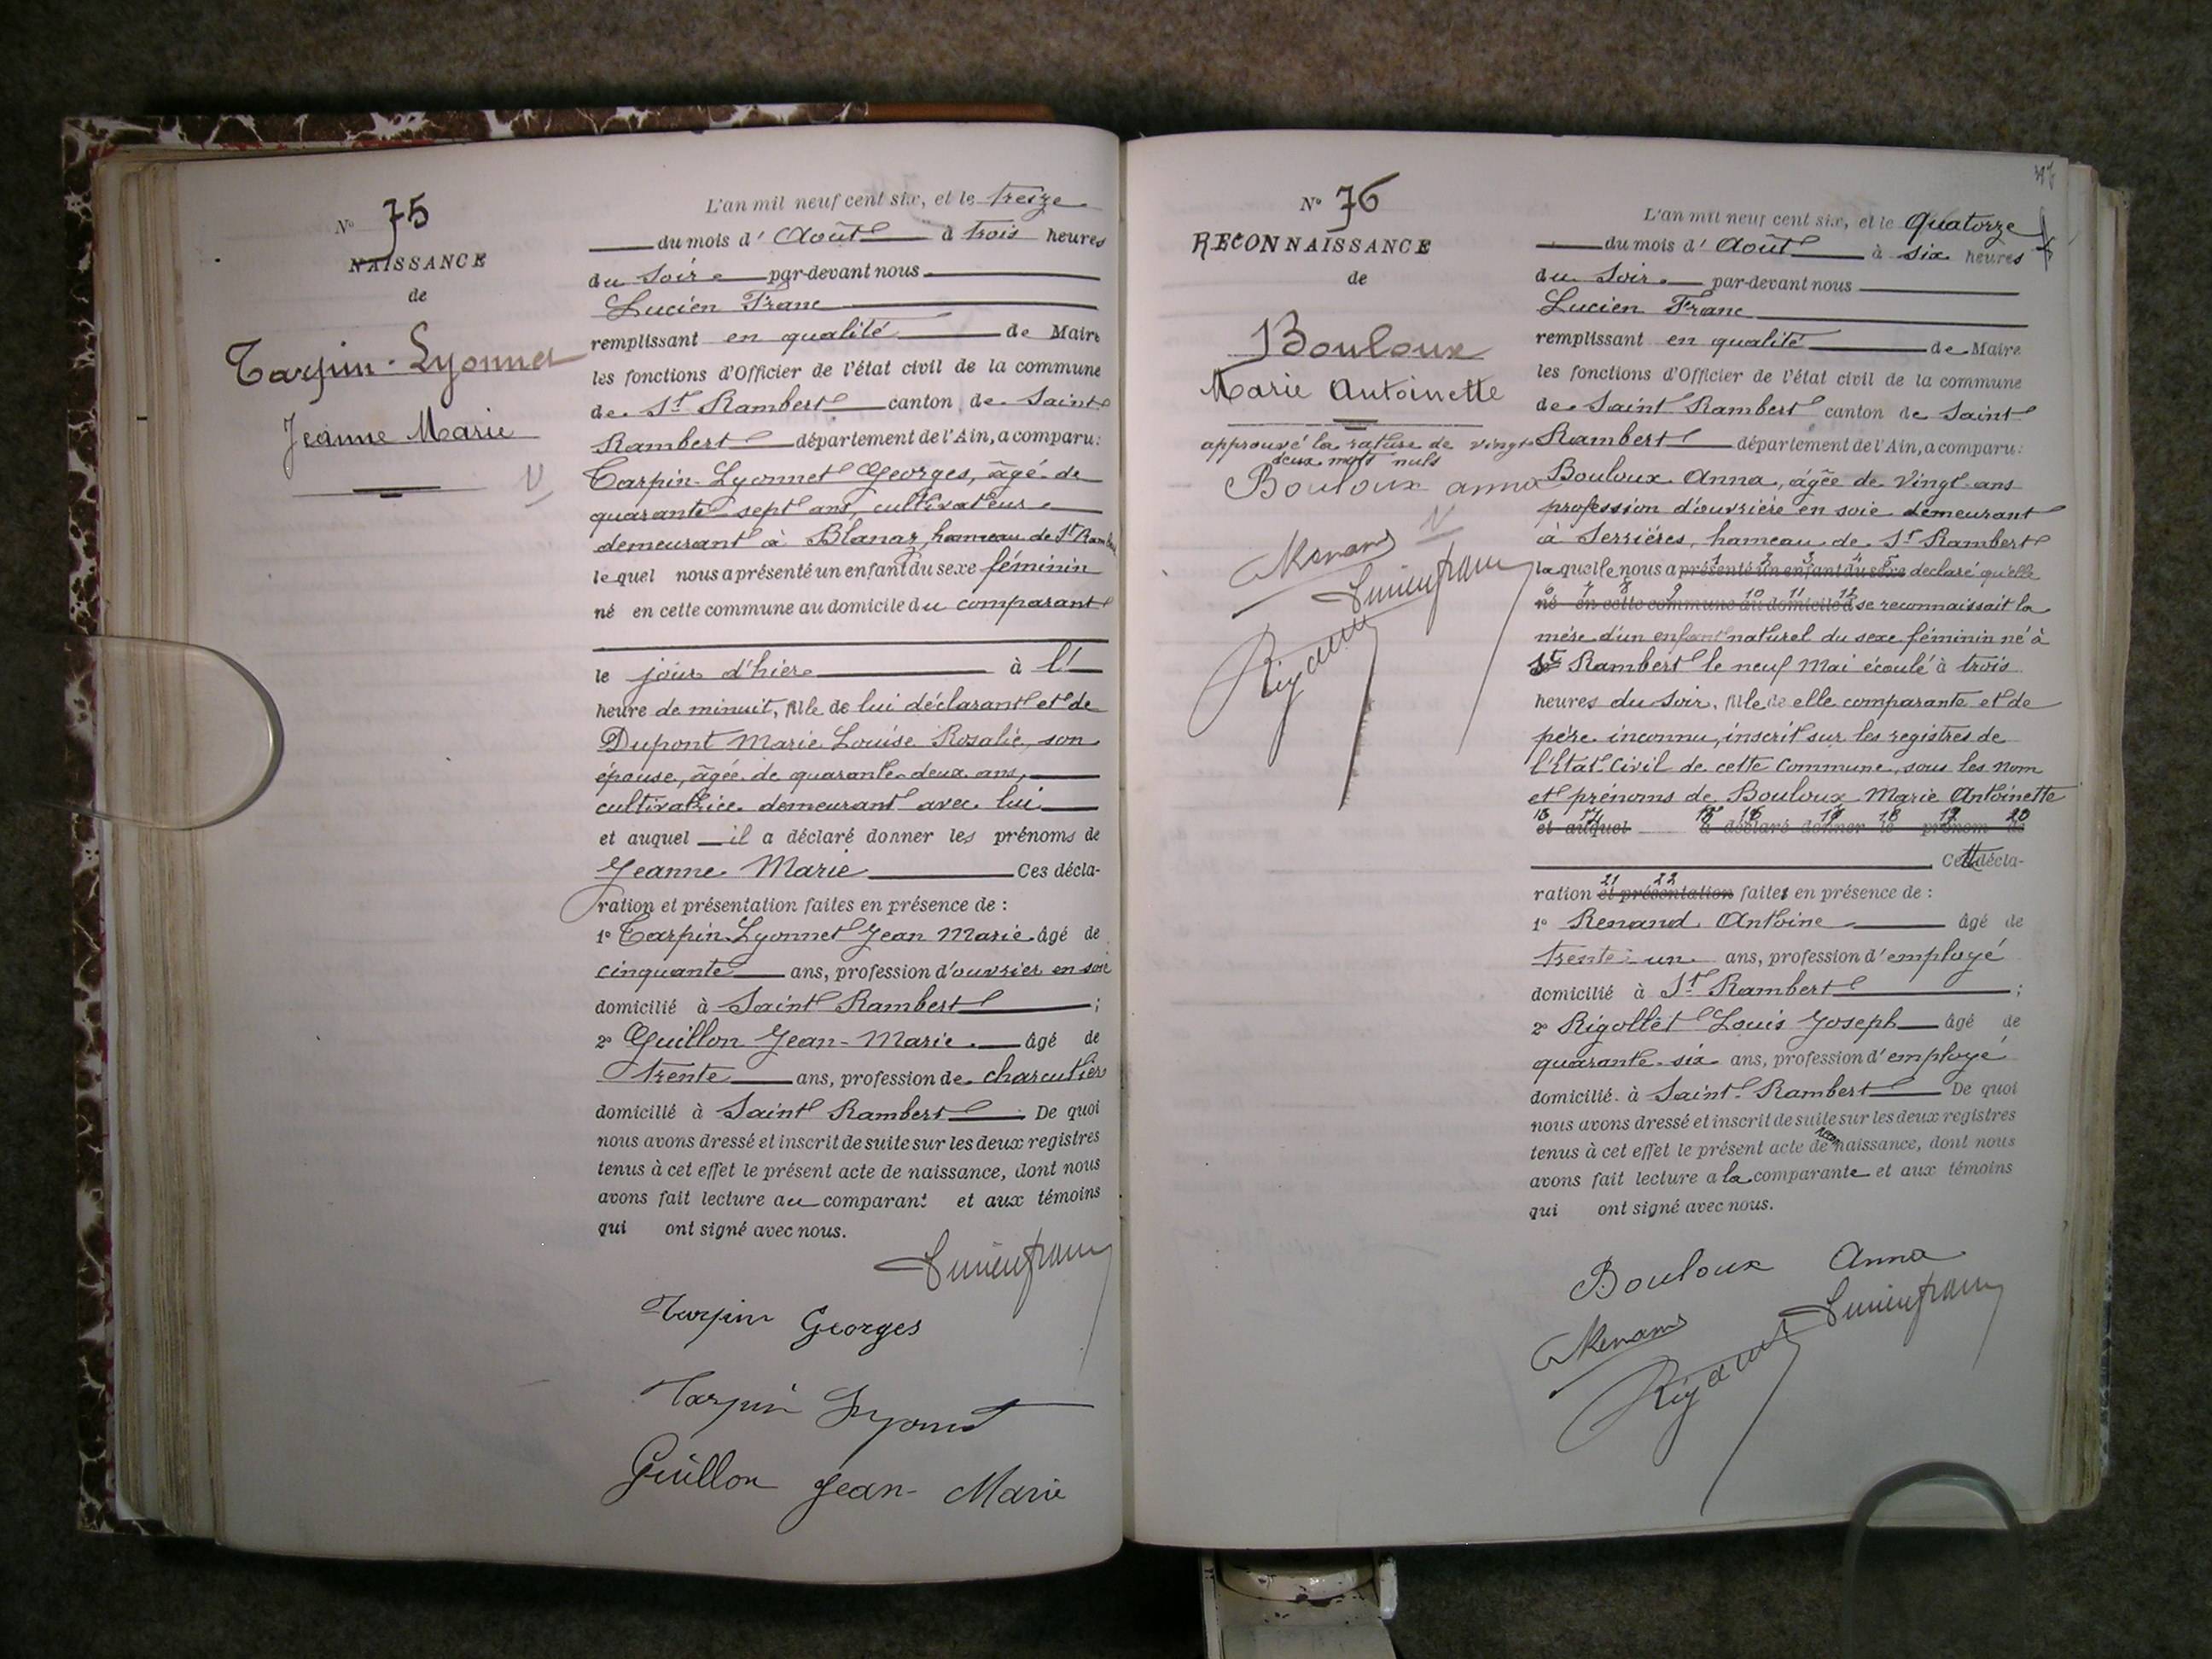 N° 75
NAISSANCE
de
Tarpin-Lyonnet
Jeanne Marie
L'an mil neuf cent six, et le treize
du mois d'Août à trois heures
du soir par-devant nous
Lucien Franc
remplissant en qualité de Maire
les fonctions d'Officier de l'état civil de la commune
de St Rambert canton de Saint
Rambert département de l'Ain, a comparu:
Tarpin-Lyonnet Georges, âgé de
quarante-sept ans, cultivateur
demeurant à Blanaz, hameau de St Rambert
lequel nous a présenté un enfant du sexe féminin
né en cette commune au domicile du comparant
le jour d'hier à l'
heure de minuit, fille de lui déclarant et de
Dupont Marie Louise Rosalie, son
épouse, âgée de quarante-deux ans,
cultivatrice demeurant avec lui
et auquel il a déclaré donner les prénoms de
Jeanne Marie Ces décla-
ration et présentation faites en présence de :
1° Tarpin-Lyonnet Jean Marie âgé de
cinquante ans, profession d'ouvrier en soie
domicilié à Saint Rambert ;
2° Guillon Jean-Marie âgé de
trente ans, profession de charcutier
domicilié à Saint Rambert De quoi
nous avons dressé et inscrit de suite sur les deux registres
tenus à cet effet le présent acte de naissance, dont nous
avons fait lecture au comparant et aux témoins
qui ont signé avec nous.
Lucien Franc
Tarpin Georges
Tarpin Lyonnet
Guillon Jean-Marie
N° 76
RECONNAISSANCE
de
Bouloux
Marie Antoinette
approuvé la rature de vingt
deux mots nuls
Bouloux anna
Renand
Lucien Franc
L'an mil neuf cent six, et le Quatorze
du mois d'Août à six heures
du soir par-devant nous
Lucien Franc
remplissant en qualité de Maire
les fonctions d'Officier de l'état civil de la commune
de Saint Rambert canton de Saint
Rambert département de l'Ain, a comparu:
Bouloux Anna, âgée de vingt ans
profession d'ouvrière en soie demeurant
à Serrières, hameau de St Rambert
1 2 3 4 5
laquelle nous a présenté un enfant du sexe declaré qu'elle
6 7 8 9 10 11 12
né en cette commune au domicile d se reconnaissait la
mère d'un enfant naturel du sexe féminin né à
St Rambert le neuf Mai écoulé à trois
heures du soir, fille de elle comparante et de
père inconnu, inscrit sur les registres de
l'Etat-Civil de cette commune, sous les nom
et prénoms de Bouloux Marie Antoinette
13 14 15 16 17 18 19 20
et auquel a déclaré donner le prénom de
Cette décla-
21 22
ration et présentation faites en présence de :
1° Renand Antoine âgé de
trente-un ans, profession d'employé
domicilié à St Rambert ;
2° Rigollet Louis Joseph âgé de
quarante-six ans, profession d'employé
domicilié à Saint-Rambert De quoi
nous avons dressé et inscrit de suite sur les deux registres
tenus à cet effet le présent acte de reconnaissance, dont nous
avons fait lecture a la comparante et aux témoins
qui ont signé avec nous.
Bouloux Anna
Renand
Lucien Franc